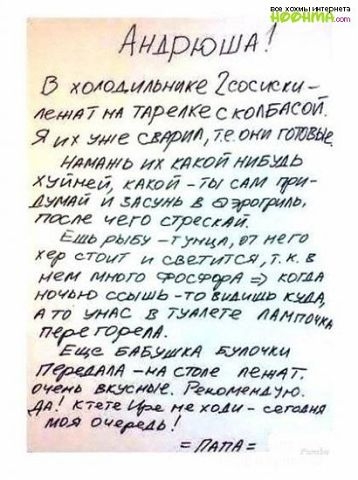 все хохмы интернета
HOOHMA.com
АНДРЮША!
В холодильнике 2 сосиски –
лежат на тарелке с колбасой.
Я их уже сварил, т.е. они готовые.
Намажь их какой нибудь
хуйнёй, какой – ты сам при-
думай и засунь в аэрогриль,
после чего стрескай.
Ешь рыбу – тунца, от него
хер стоит и светится, т.к. в
нем много фосфора => когда
ночью ссышь – то видишь куда,
а то у нас в туалете лампочка
перегорела.
Еще бабушка булочки
передала – на столе лежат.
очень вкусные. Рекомендую.
Да! К тете Ире не ходи – сегодня
моя очередь!
= ПАПА =